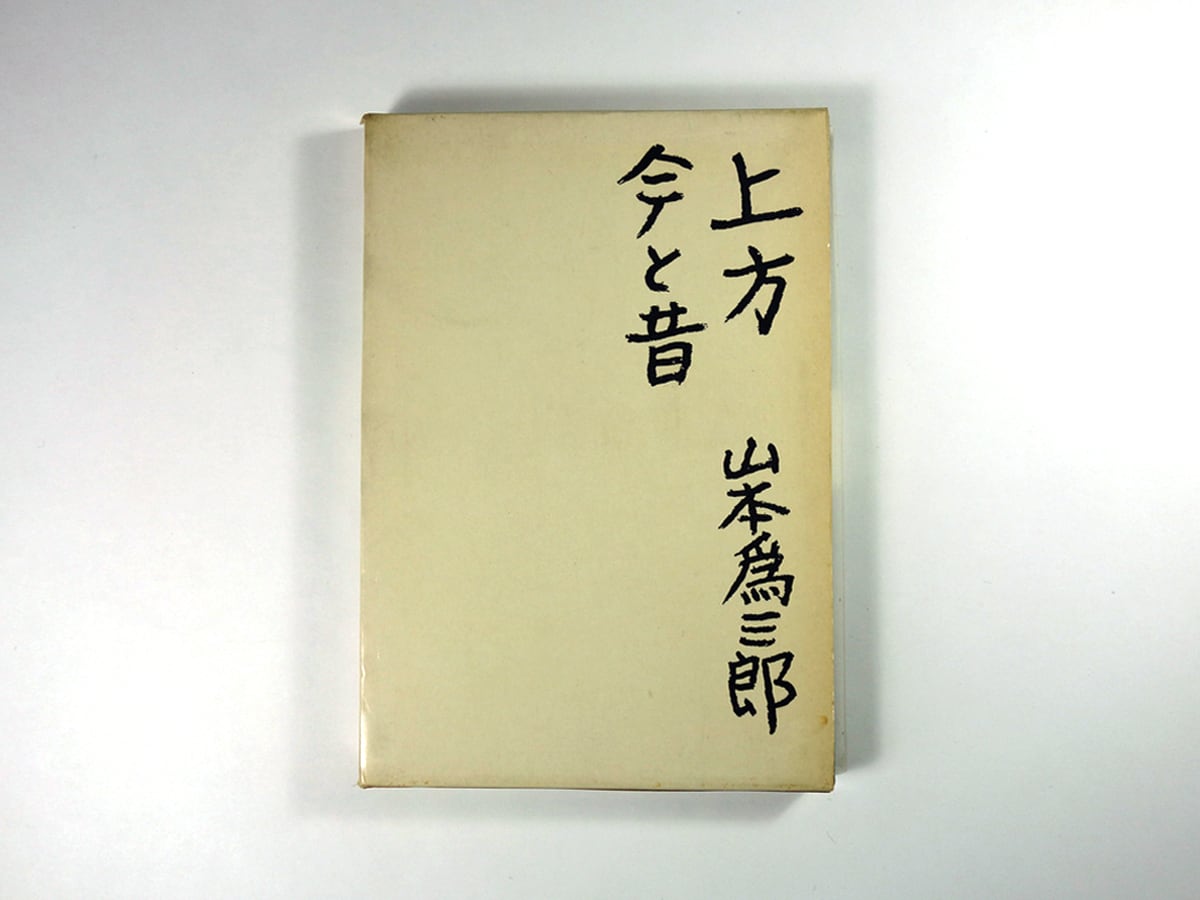 上方
今と昔
山本爲三郎